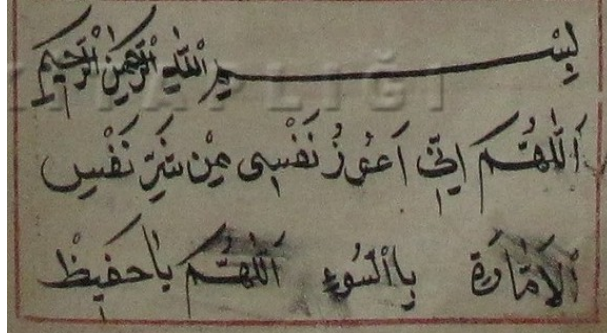 بِسْمِ اللّٰهِ الرَّحْمٰنِ الرَّحِيمِ
اَللّٰهُمَّ اِنِّى اَعُوزُ نَفْسِى مِنْ شَرِّ نَفْسِ
الْاَمَّارَةِ بِاالسُّوءِ اَللّٰهُمَّ يَاحَفِيظْ